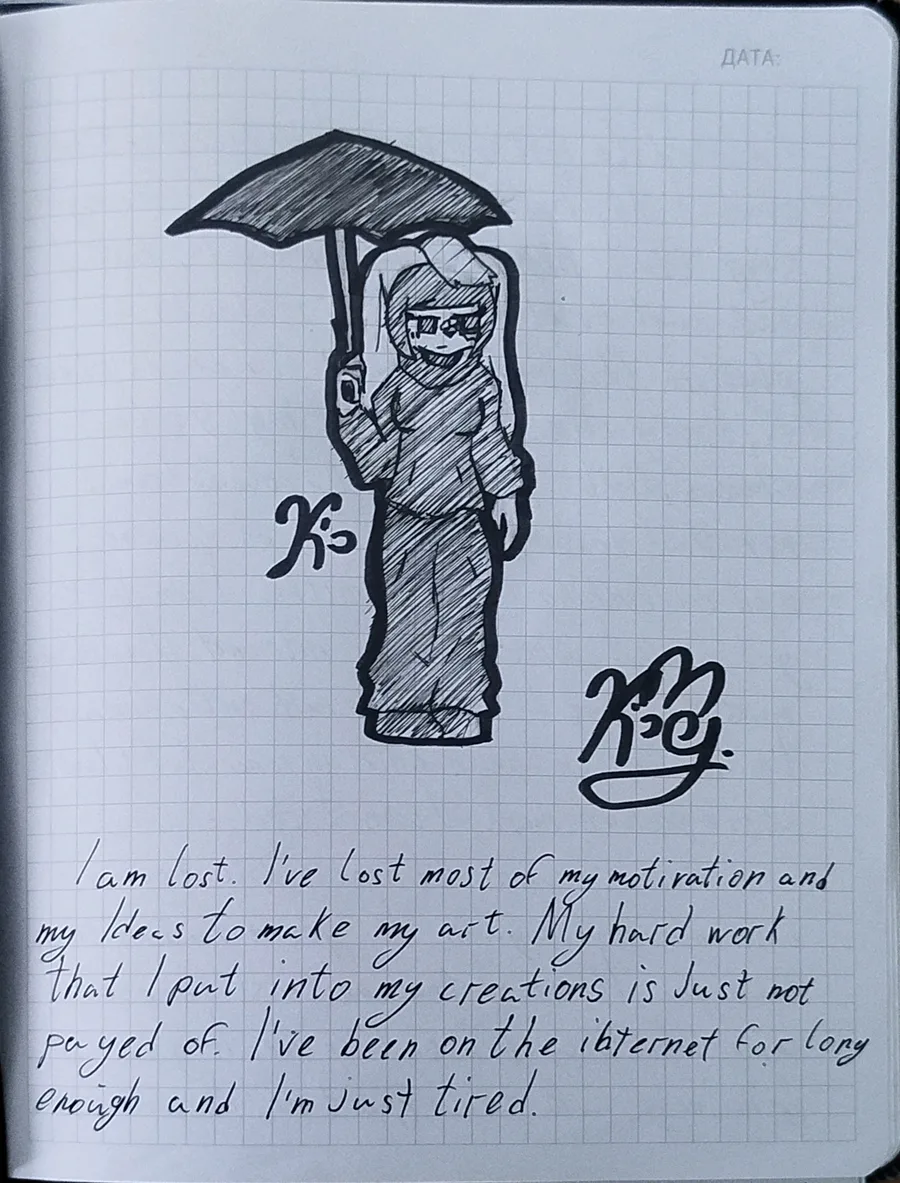 ДАТА:
I am lost. I've lost most of my motivation and
my Ideas to make my art. My hard work
that I put into my creations is Just not
payed of. I've been on the ibternet for long
enough and I'm just tired.